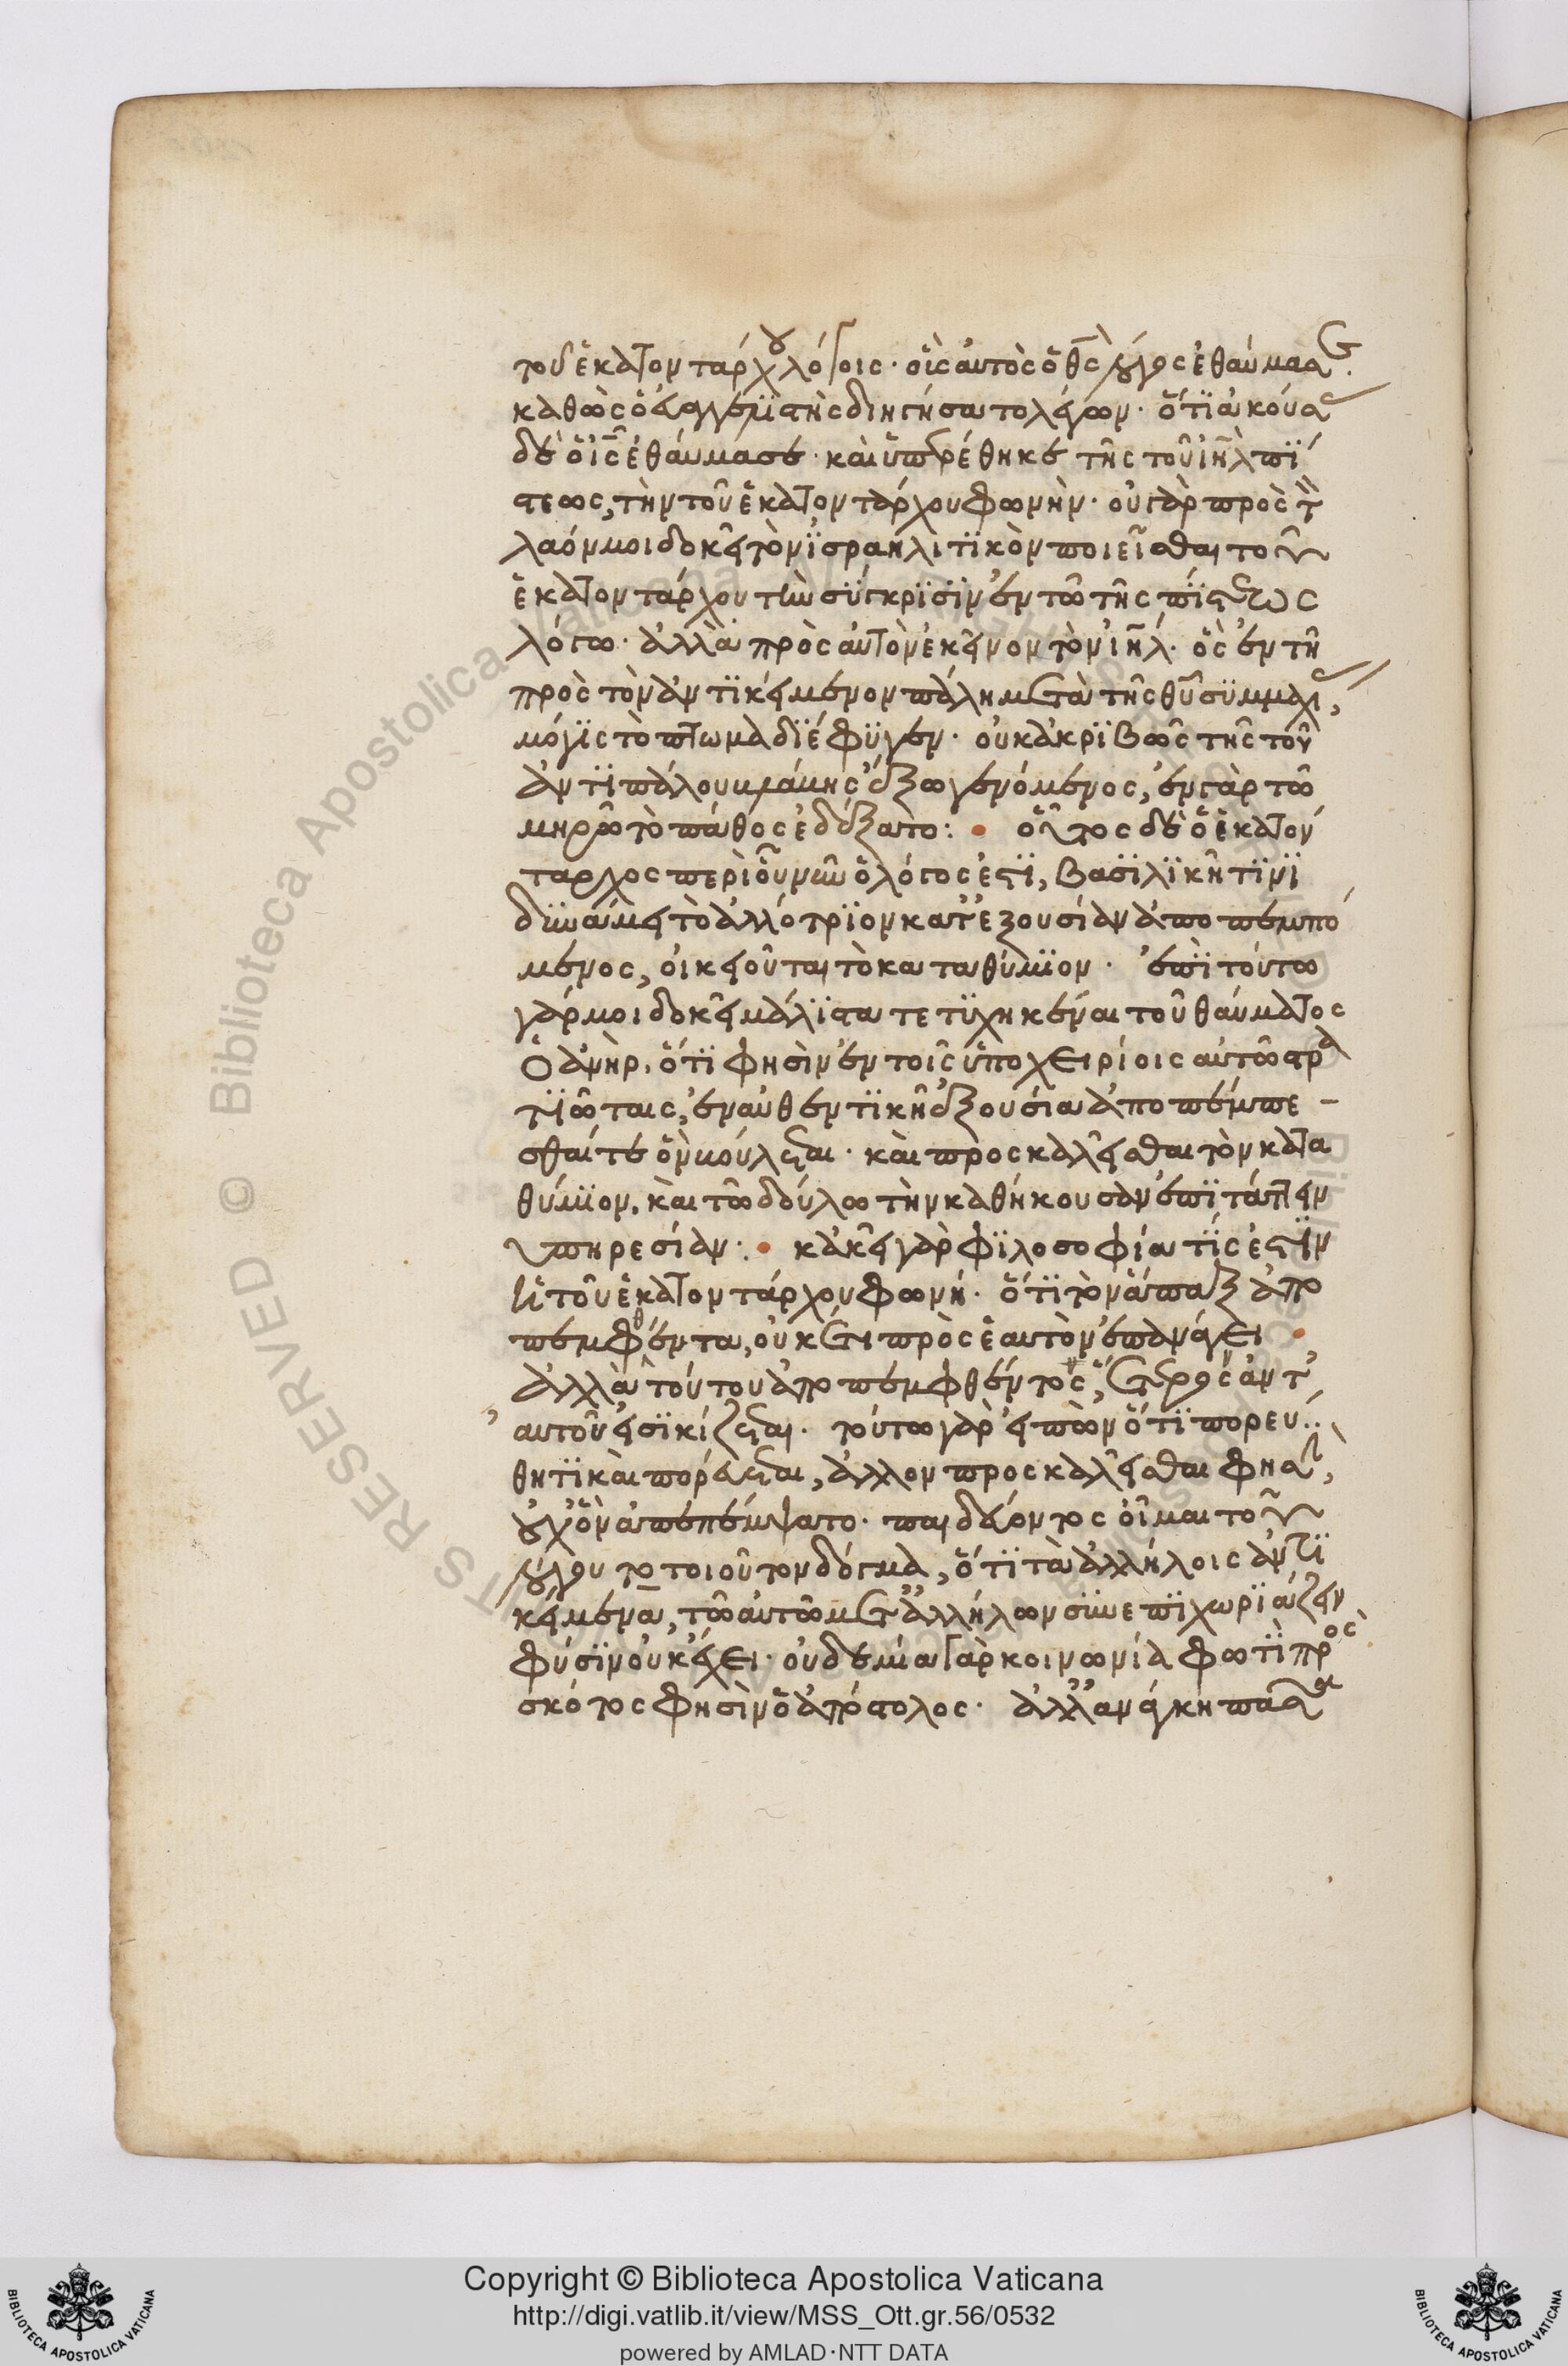 τοῦ ἑκατοντάρχου λόγοις· οἷς αὐτὸς ὁ θς λόγος ἐθαύμασε
καθὼς ὁ εὐαγγελϊστὴς διηγήσατο λέγων· ὅτϊ ἀκούσας
δὲ ὁ ις ἐθαύμασε· καὶ ὑπερέθηκε τῆς τοῦ ιηλ πΐ
στεως, τὴν τοῦ ἑκατοντάρχου φωνὴν· οὐ γὰρ πρὸς τὸν
λαόν μοι δοκεῖ τὸν ἰσραηλιτϊκὸν ποιεῖσθαι τοῦ
ἑκατοντάρχου τὴν σΰγκρϊσϊν ἐν τῶ τῆς πΐστεως
λόγω· ἀλλὰ πρὸς αὐτὸν ἐκεῖνον τὸν ιηλ· ὃς ἐν τῆ
πρὸς τὸν ἀντϊκείμενον πάλη μετὰ τῆς θυ συμμαχίας,
μόγϊς τὸ πτῶμα δϊέφϋγεν· οὐκ ἀκρϊβῶς τῆς τοῦ
ἀντϊπάλου βλάβης ἔξω γενόμενος, ἐν γὰρ τῶ
μηρῶ τὸ πάθος ἐδέξατο: • οὗτος δὲ ὁ ἑκατόν
ταρχος περὶ οὗ νῦν ὁ λόγος ἐστϊ, βασϊλϊκῆ τϊνϊ
δϋνάμει τὸ ἀλλότρϊον κατ' ἐξουσίαν ἀποπεμπό
μενος, οἰκειοῦται τὸ καταθύμϊον· ἐπὶ τούτω
γάρ μοι δοκεῖ μάλϊστα τετϋχηκέναι τοῦ θαύματος
ὁ ἀνὴρ· ὅτϊ φησὶν ἐν τοῖς ὑποχειρίοις αὐτῶ στρα
τϊώταις, ἐν αὐθεντϊκῆ ἐξουσία ἀποπέμπε -
σθαί τε ὃν βούλεται· καὶ προσκαλεῖσθαι τὸν κατα
θύμϊον, καὶ τῶ δούλω τὴν καθήκουσαν ἐπϊτάττειν
ὑπηρεσίαν·: • κἀκεῖ γὰρ φϊλοσοφία τϊς ἐστϊν
ἡ τοῦ ἑκατοντάρχου φωνή· ὅτϊ τὸν ἅπαξ ἀπο
πεμφθέντα, οὐκέτι πρὸς ἑαυτὸν ἐπανάγει •
ἀλλὰ τούτου ἀποπεμφθέντος, ἕτερος ἀντ'
αὐτοῦ εἰσϊκίζεται· τούτω γὰρ εἰπὼν ὅτϊ πορεύ
θητϊ καὶ πορεύεται, ἄλλον προσκαλεῖσθαι φησὶ,
οὐχ' ὃν ἀπεπέμψατο· παιδεύοντος οἶμαι τοῦ
λόγου τὸ τοιοῦτον δόγμα, ὅτϊ τὰ ἀλλήλοις ἀντϊ
κείμενα, τῶ αὐτῶ μετ' ἀλλήλων συνεπϊχωρϊάζειν
φύσϊν οὐκ ἔχει· οὐδεμία γὰρ κοινωνία φωτὶ πρὸς
σκότος φησὶν ὁ ἀπόστολος· ἀλλ' ἀνάγκη πᾶσα
Copyright © Biblioteca Apostolica Vaticana
http://digi.vatlib.it/view/MSS_Ott.gr.56/0532
powered by AMLAD·NTT DATA